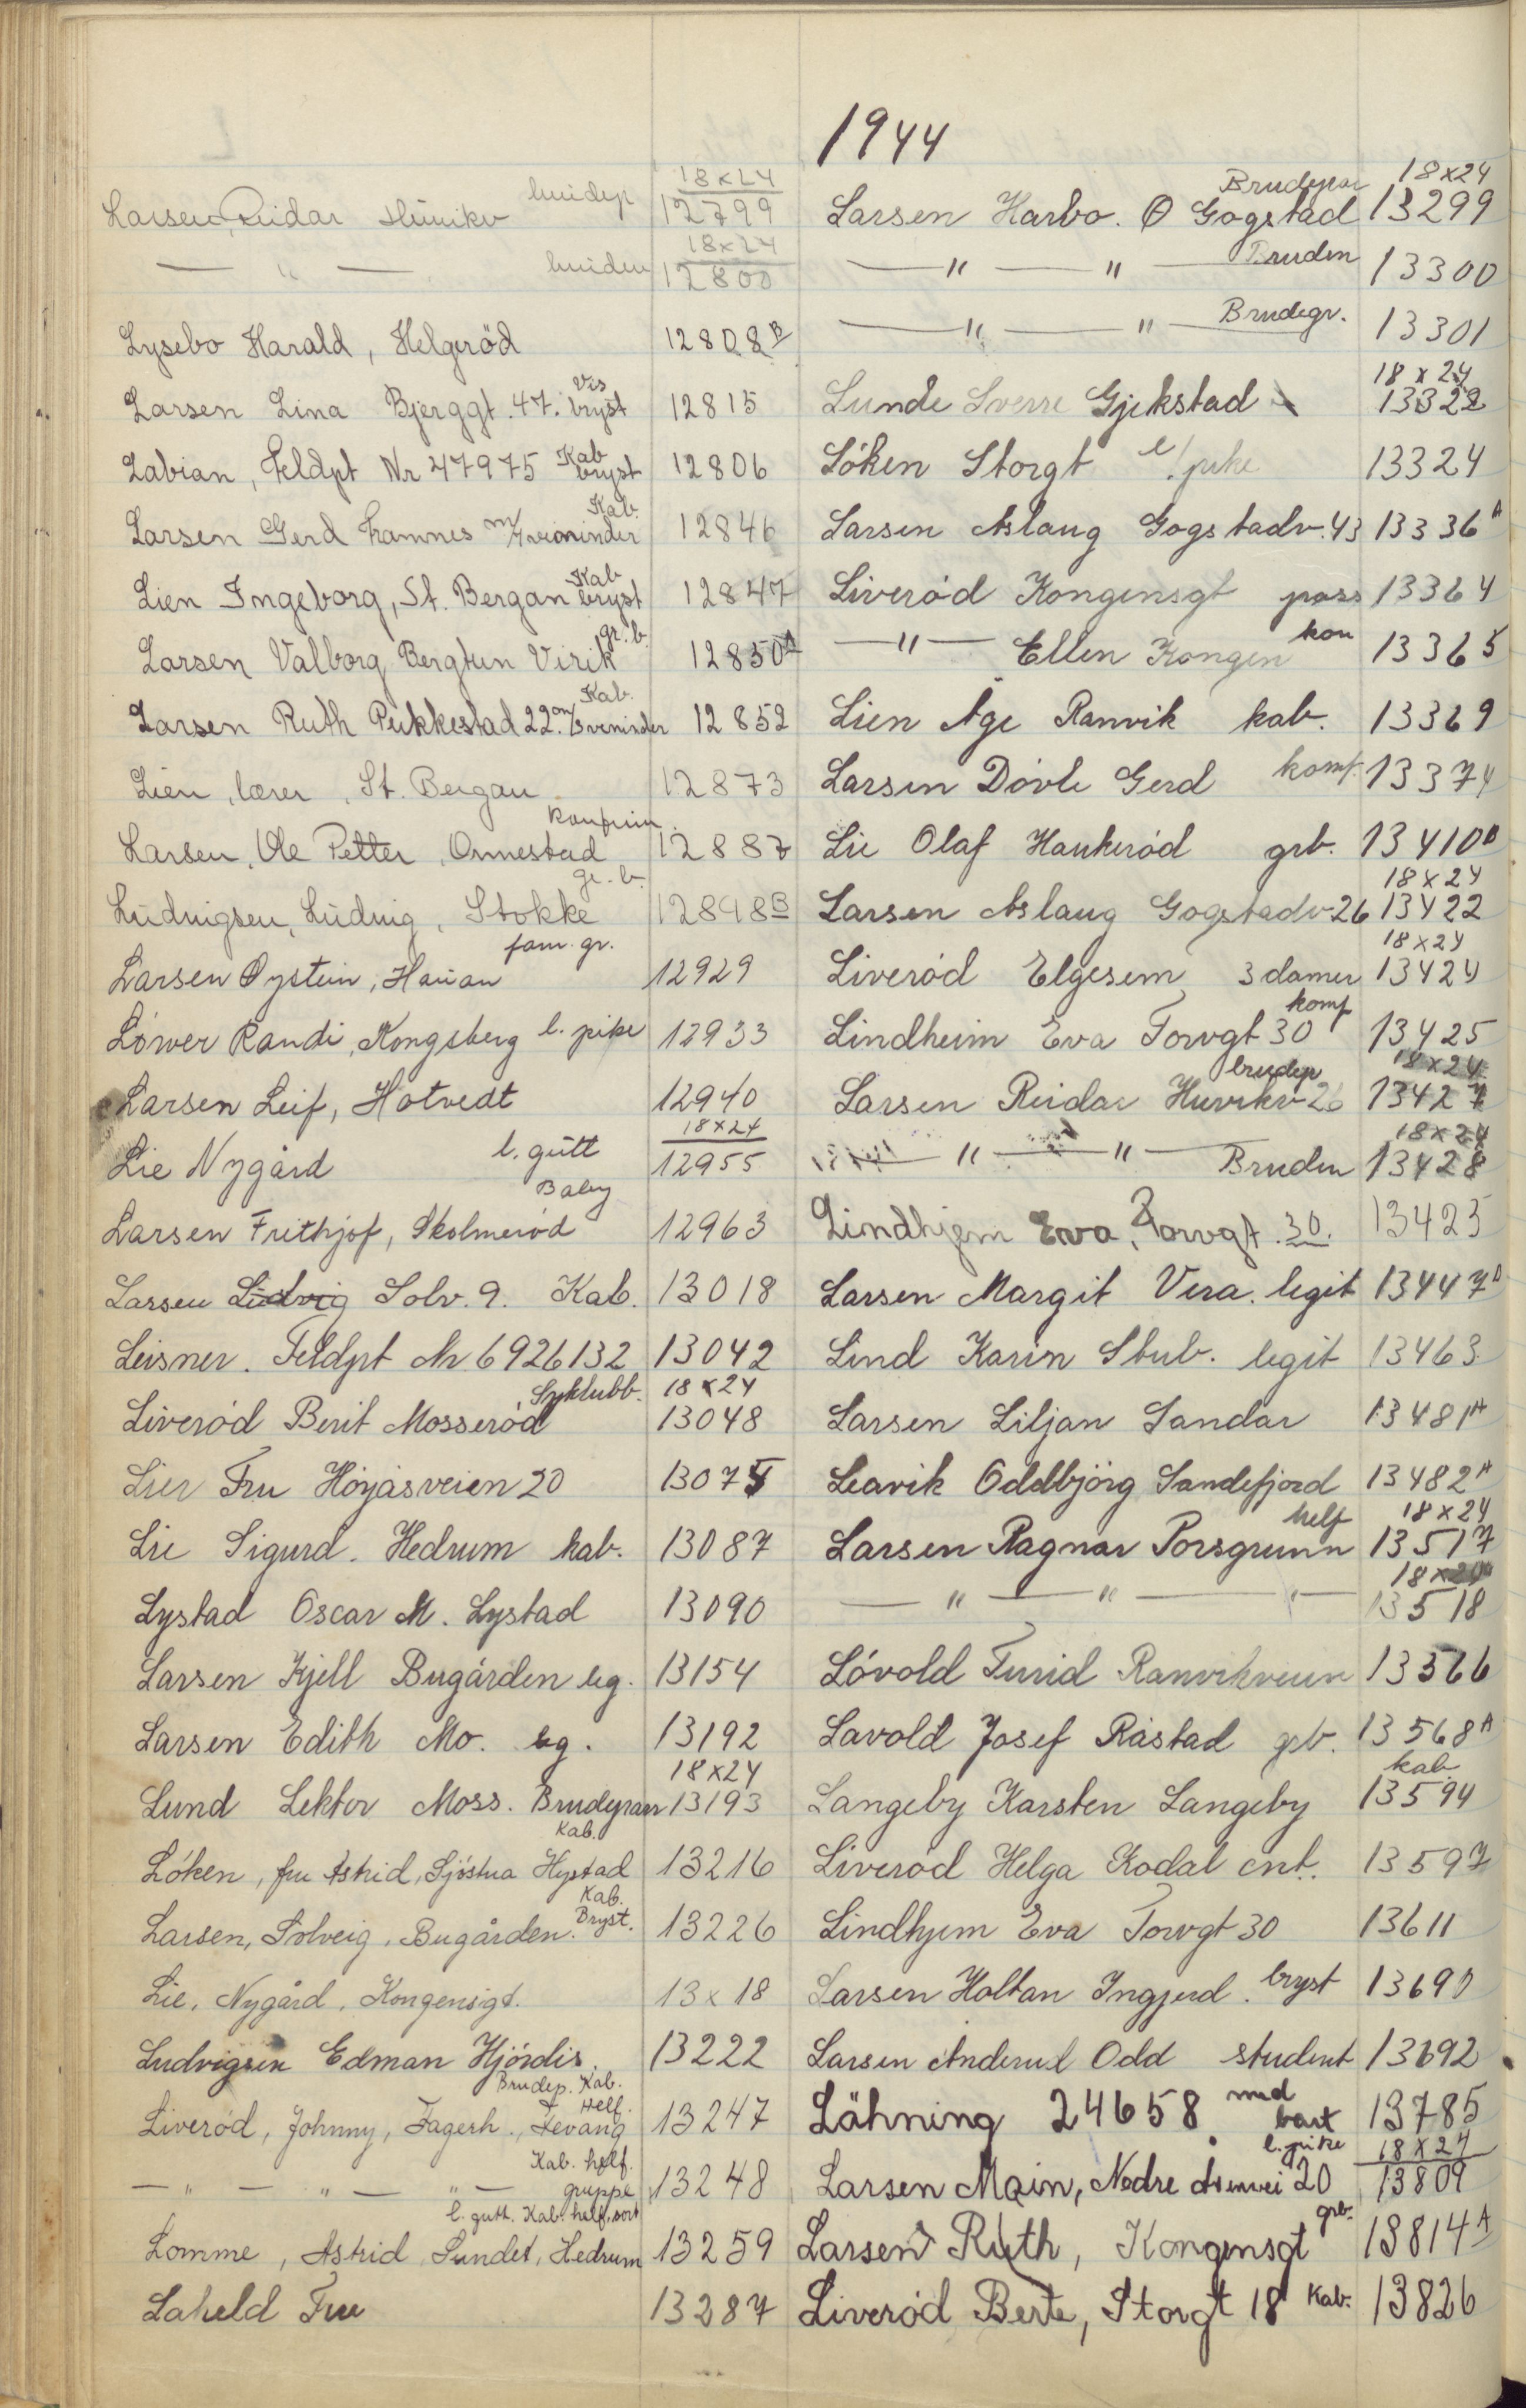 1944
Larsen, Reidar Hunikv brudep 18x24 12799
— " — bruden 18x24 12800
Lysebo Harald, Helgeröd 12808 B
Larsen Lina Bjerggt. 47. Vis bryst 12815
Labian, Feldpt Nr 47975 Kab bryst 12806
Larsen Gerd Framnes m/ veninder Kab. 12846
Lien Ingeborg, St. Bergan Kab bryst 12847
Larsen Valborg Bergtun Virik gr. b. 12850 A
Larsen Ruth Pukkestad 22. m/ veninder Kab. 12852
Lien, lærer, St. Bergan 12873
Larsen, Ole Petter, Ormestad konfirm. 12887
Ludvigsen, Ludvig, Stokke gr. b. 12898 B
Larsen Øystein, Hauan fam. gr. 12929
Löwer Randi, Kongsberg l. pike 12933
Larsen Leif, Hotvedt 12940
Lie Nygård l. gutt 18x24 12955
Larsen Frithjof, Skolmeröd Baby 12963
Larsen Ludvig Solv. 9. Kab. 13018
Leisner. Feldpt Nr 6926132 13042
Liveröd Berit Mosseröd Syklubb. 18x24 13048
Lier Fru Höyåsveien 20 13075
Lie Sigurd. Hedrum kab. 13087
Lystad Oscar M. Lystad 13090
Larsen Kjell Bugården leg. 13154
Larsen Edith Mo. leg. 13192
Lund Lektor Moss. Brudepaar 18x24 13193
Löken, fru Astrid, Sjöstua Hystad Kab. 13216
Larsen, Solveig, Bugården. Kab. Bryst. 13226
Lie, Nygård, Kongensgt. 13x18
Ludvigsen Edman Hjördis. 13222
Liveröd, Johnny, Fagerh., Tevang Brudep. Kab. Helf. 13247
— " — " — " — Kab. helf. gruppe 13248
Lomme, Astrid Sundet, Hedrum l. gutt. Kab. helf. sort 13259
Laheld Fru 13287
Larsen Harbo. Ø Gogstad Brudepar 18x24 13299
— " — " — Bruden 13300
— " — " — Brudegr. 13301
Lunde Sverre Gjekstad 18x24 13322
Löken Storgt l/pike 13324
Larsen Aslaug Gogstadv. 43 13336 A
Liveröd Kongensgt pass 13364
— " — Ellen Kongen kon 13365
Lien Åge Ranvik kab. 13369
Larsen Dövle Gerd komf. 13374
Lie Olaf Haukeröd grb. 13410 B
Larsen Aslaug Gogstadv 26 18x24 13422
Liveröd Elgesem 3 damer 18x24 13424
Lindheim Eva Torvgt 30 komf 13425
Larsen Reidar Huvikv 26 brudep 18x24 13427
— " — " — Bruden 18x24 13428
Lindhjem Eva, Torvgt. 30. 13425
Larsen Margit Vera. legit 13447 B
Lind Karin Stub. legit 13463
Larsen Liljan Sandar 13481 A
Leavik Oddbjörg Sandefjord 13482 A
Larsen Ragnar Porsgrunn helf 18x24 13517
— " — " — " — 13518
Lövold Turid Ranvikveien 13566
Lavold Josef Råstad grb. 13568 A
Langeby Karsten Langeby kab 13594
Liveröd Helga Kodal ent. 13597
Lindhjem Eva Torvgt 30 13611
Larsen Holtan Ingjerd. bryst 13690
Larsen Anderud Odd student 13692
Lähning 24658 med bart 13785
Larsen Main, Nedre Åsenvei 20 l. pike 18x24 13809
Larsen Ruth, Kongensgt grb. 13814 A
Liveröd Berte, Storgt 18 Kab. 13826